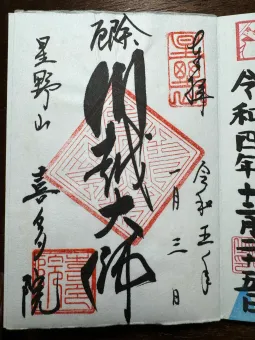 奉拝
令和五年
一月三日
厄除
川越大師
星野山
喜多院
令和四年十二月二十五日